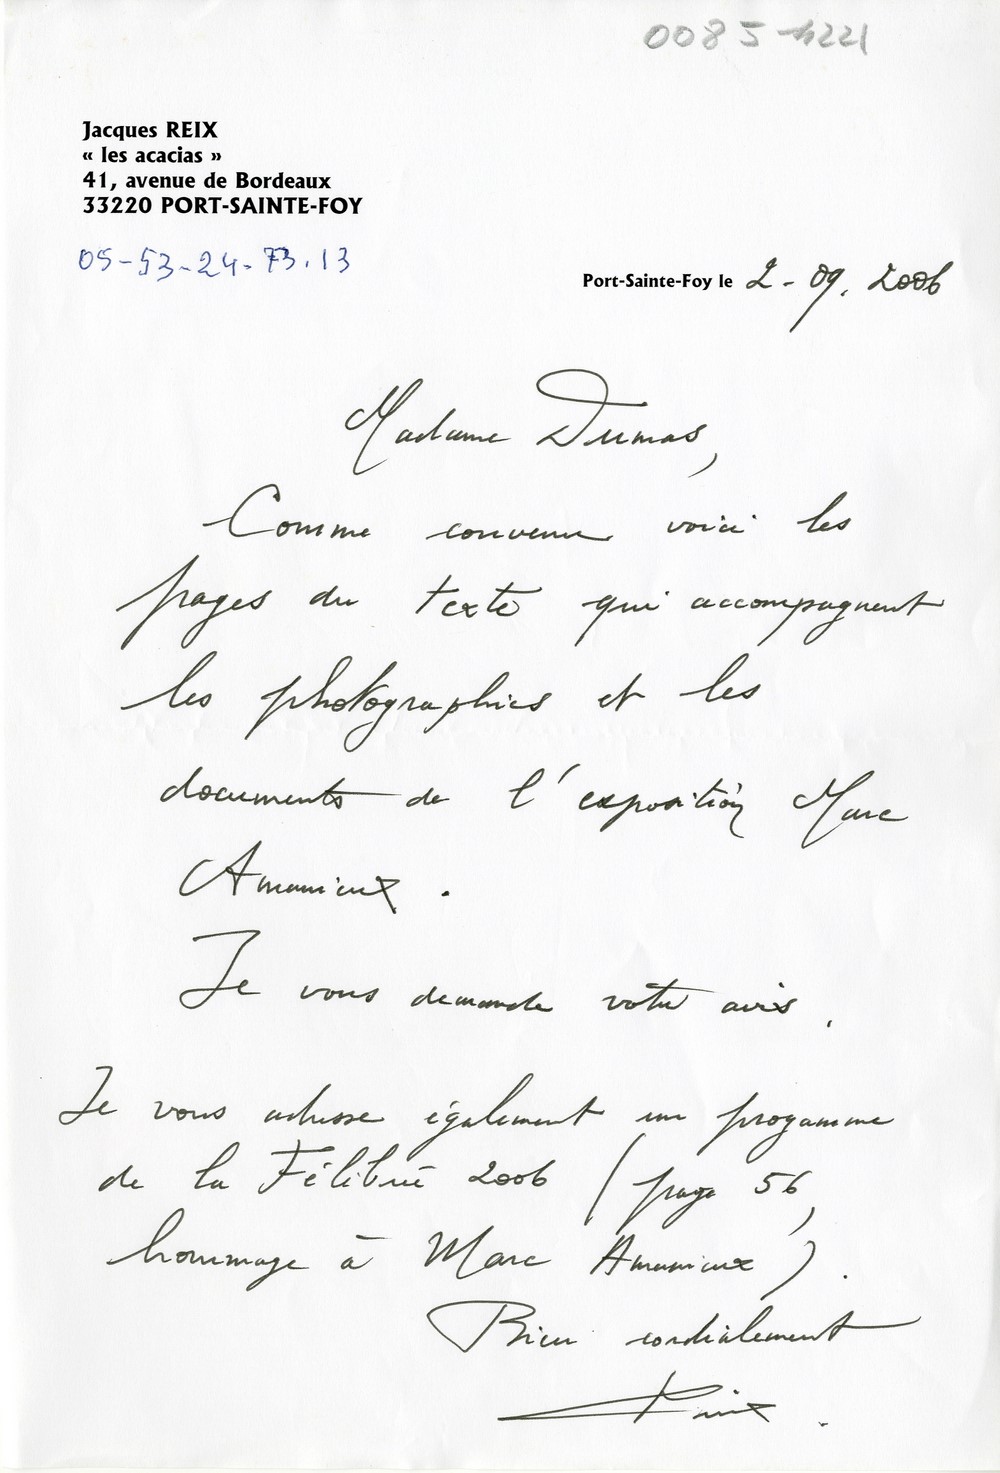 0085-4221
Jacques REIX
« les acacias »
41, avenue de Bordeaux
33220 PORT-SAINTE-FOY
05-53-24-73.13
Port-Sainte-Foy le 2-09.2006
Madame Dumas,
Comme convenu voici les
pages du texte qui accompagnent
les photographies et les
documents de l'exposition Marc
Amanieux.
Je vous demande votre avis.
Je vous adresse également un progamme
de la Félibrée 2006 (page 56,
hommage à Marc Amanieux).
Bien cordialement
Reix.